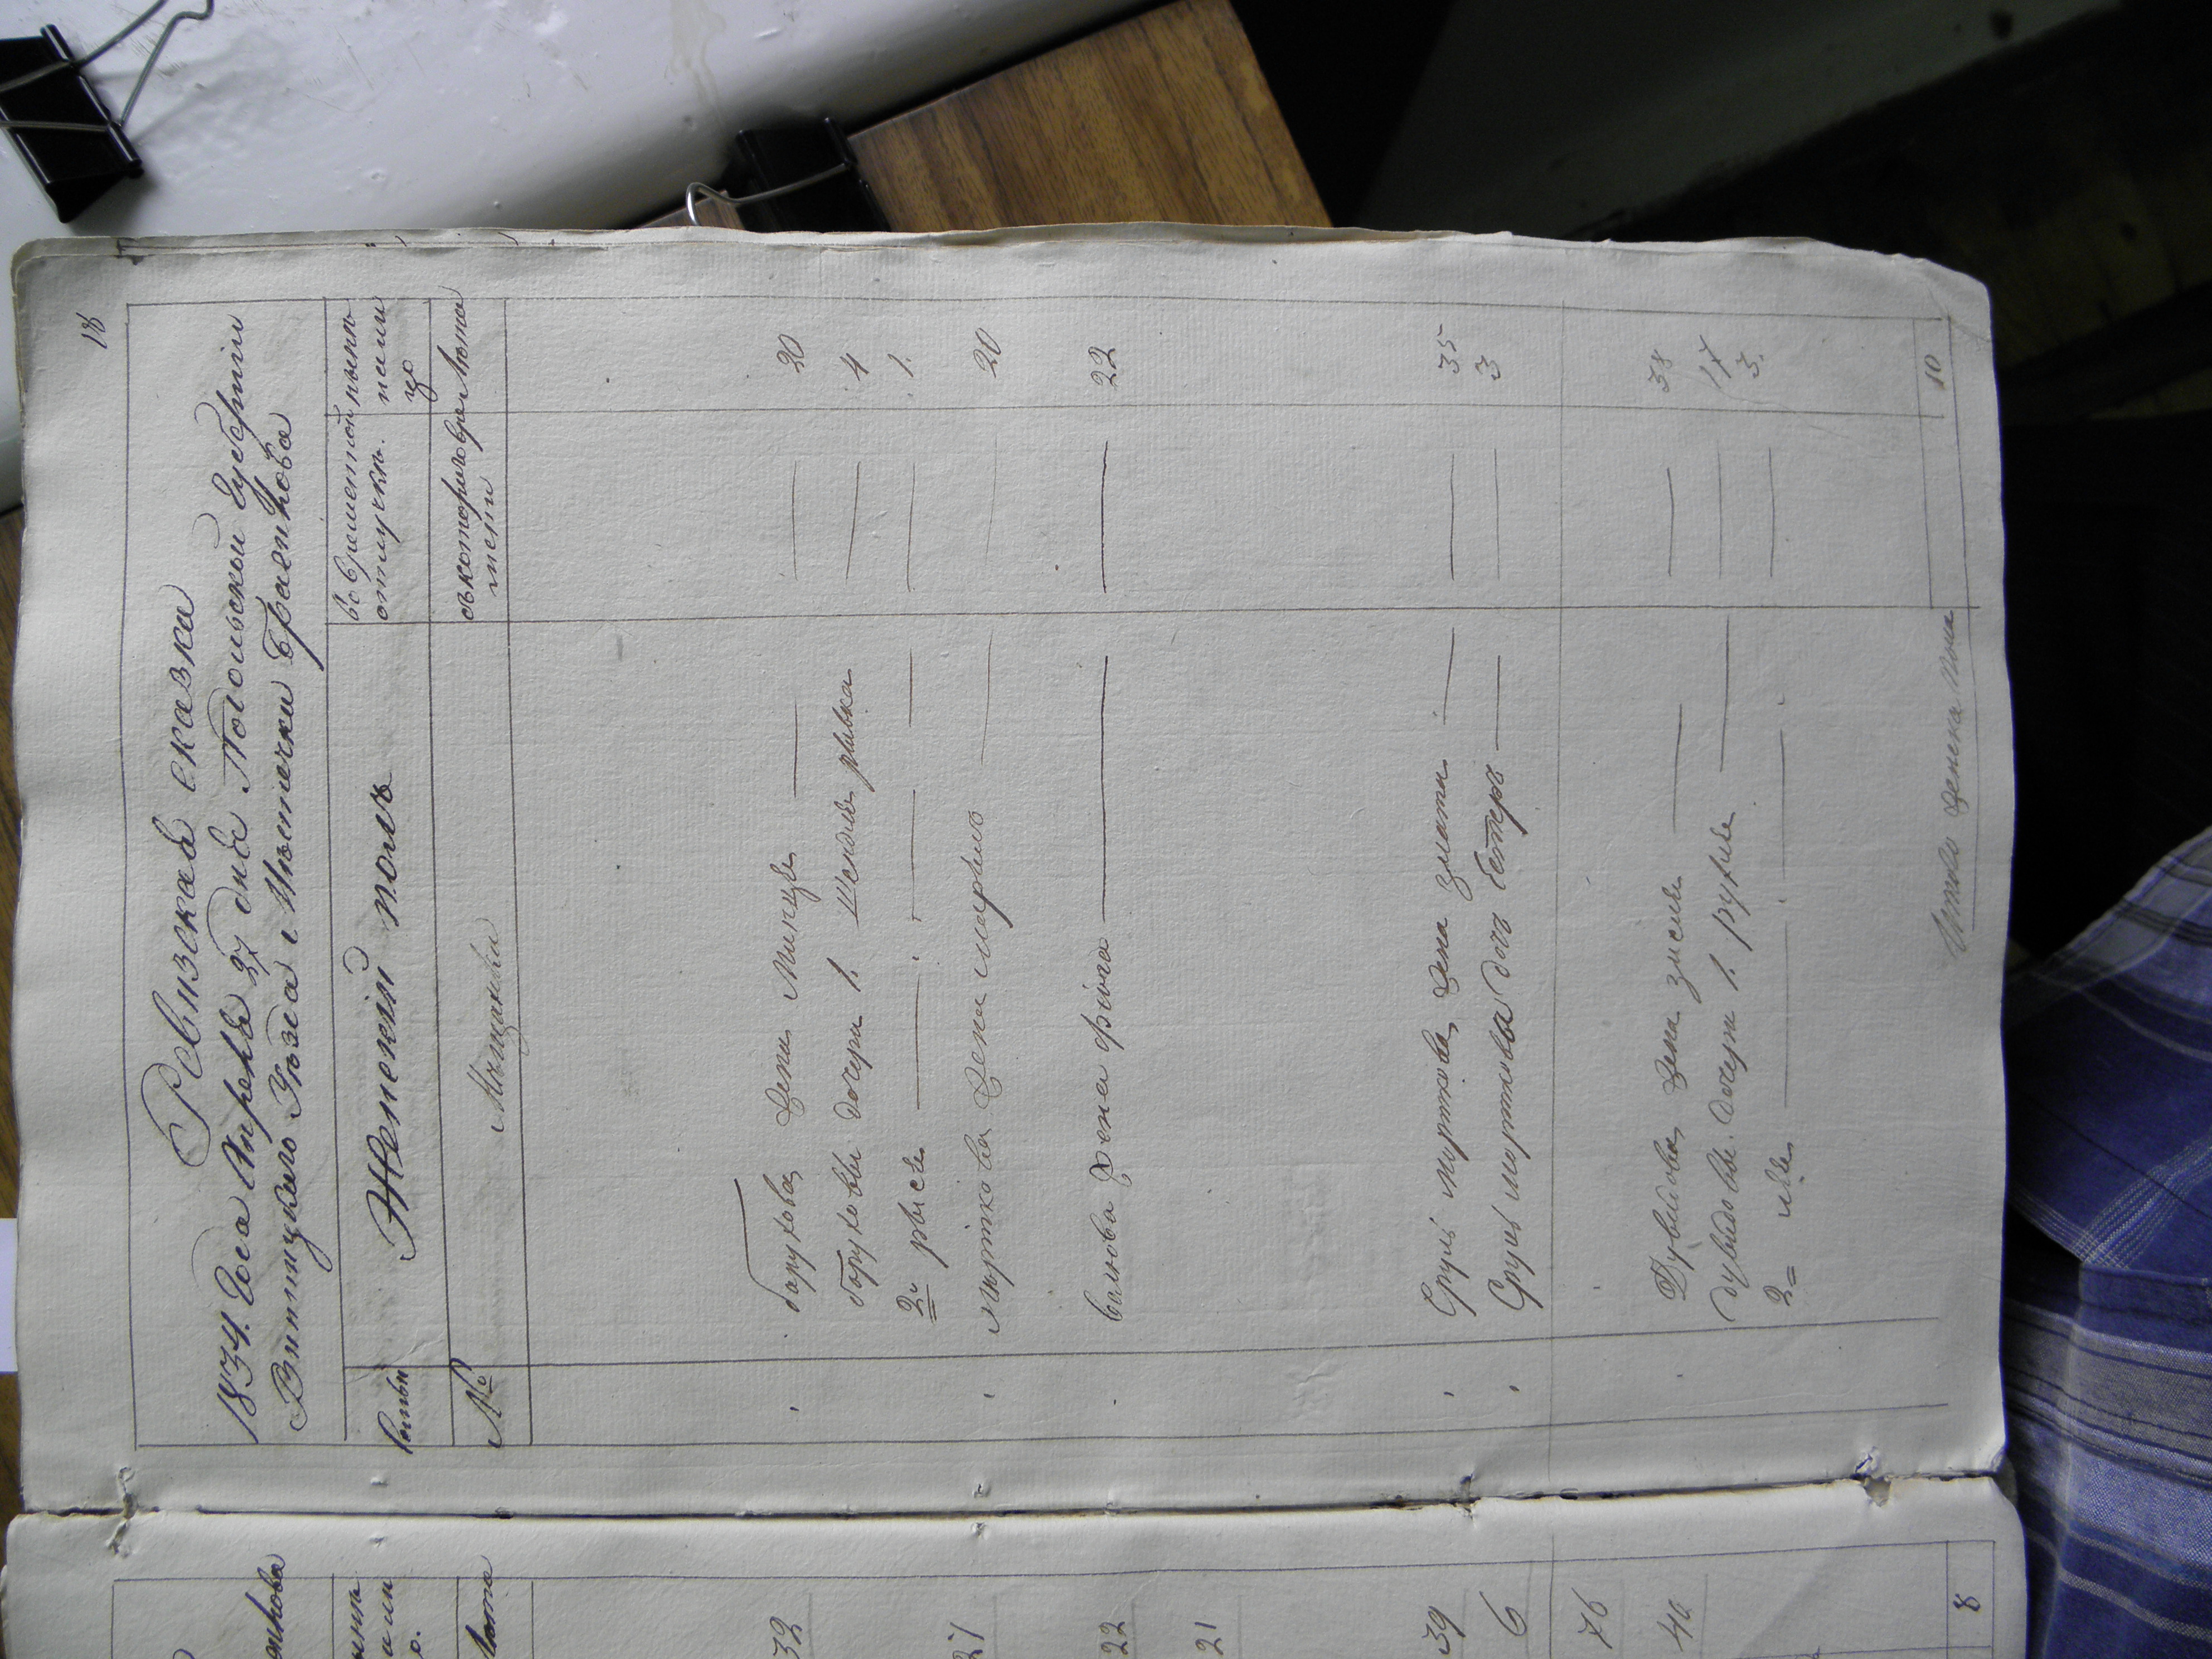 18
Ревизская сказка
1834. Года Апреля 27 дня Подольской Губернии
Винницкого Уезда Местечка Браилова
семьи
Женский полъ
во временной отлучкѣ.
нынѣ на лицо
№
Мѣщанки
съ котораго времени
Лѣта
Борухова жена Минця — — 20
Боруховы дочери 1. Шендля ривка — 4
2я рыся — — 1.
Морткова жена марьмо — — 20
жена фрима — — 22
Сруля морткова жена злата — — 35
Сруля морткова дочь Естеръ — — 3
Дувидова жена зисля — — 38
Дувидовы дочери 1. рухля — — 17
2= — — 3.
Итого женска пола 10
32
27
22
21
39
6
76
40
8